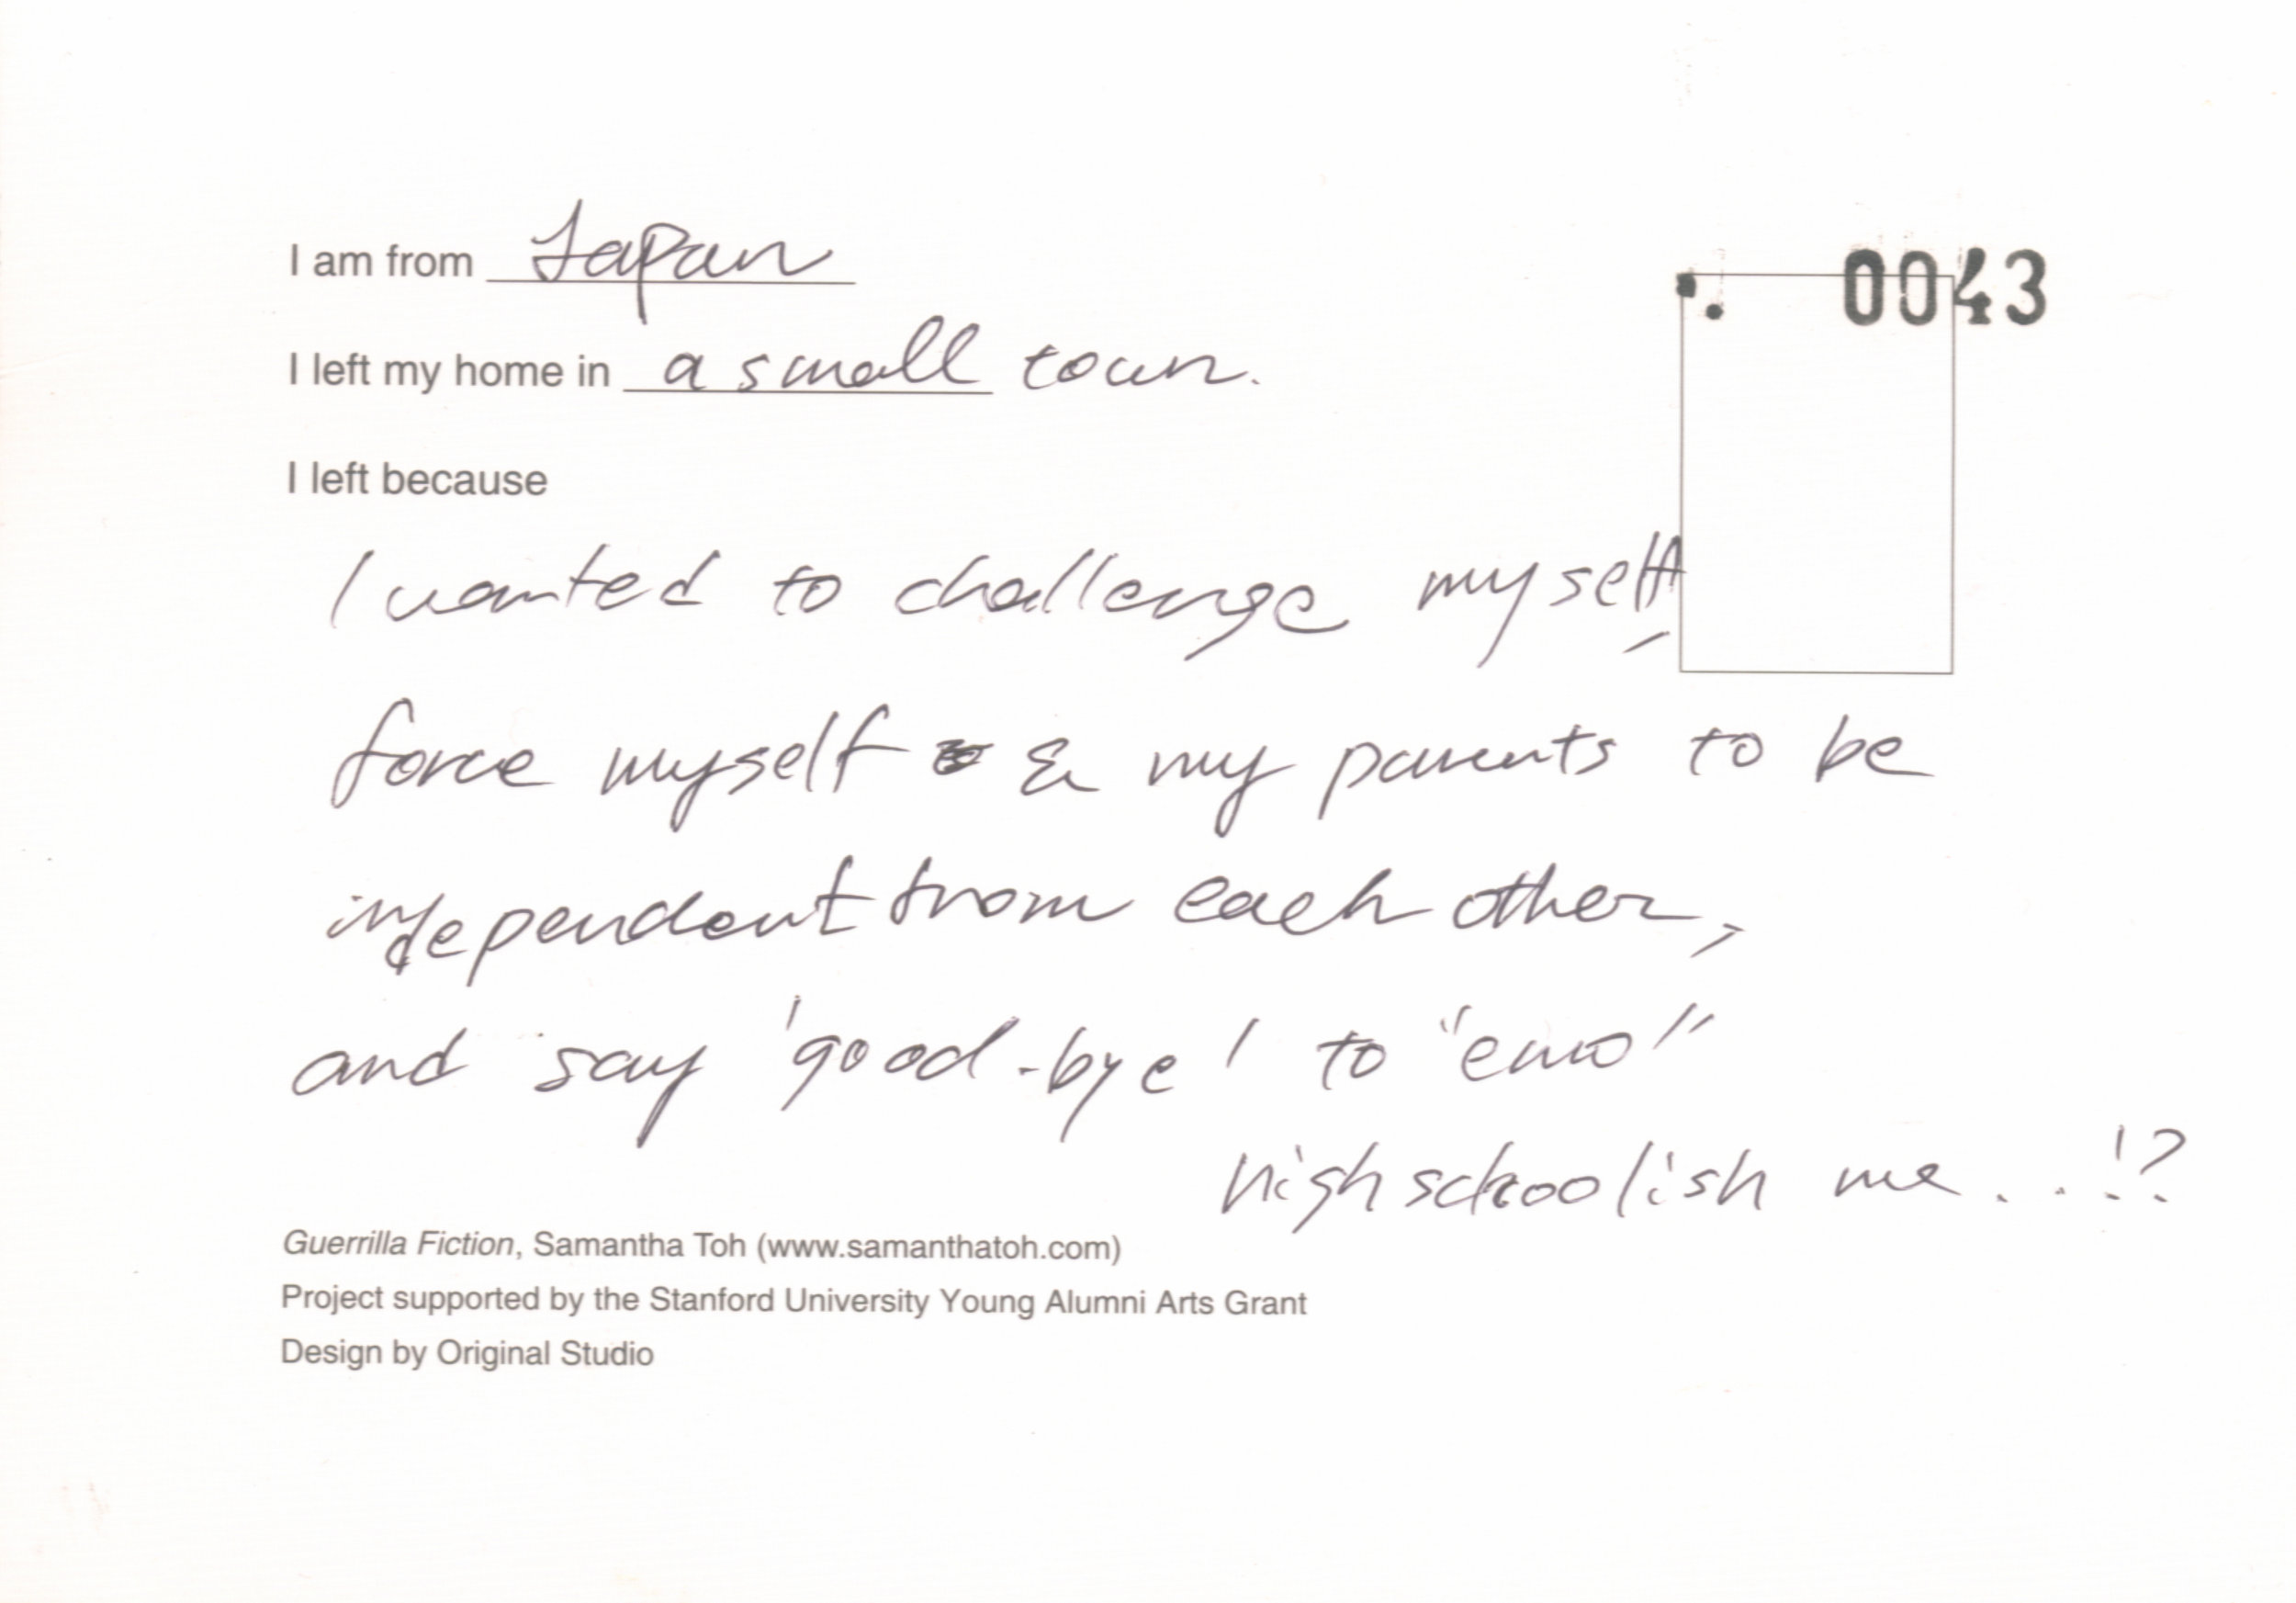 I am from Japan
0043
I left my home in a small town.
I left because
I wanted to challenge myself,
force myself & my parents to be
independent from each other,
and say 'good-bye' to "emo"
highschoolish me...!?
Guerrilla Fiction, Samantha Toh (www.samanthatoh.com)
Project supported by the Stanford University Young Alumni Arts Grant
Design by Original Studio